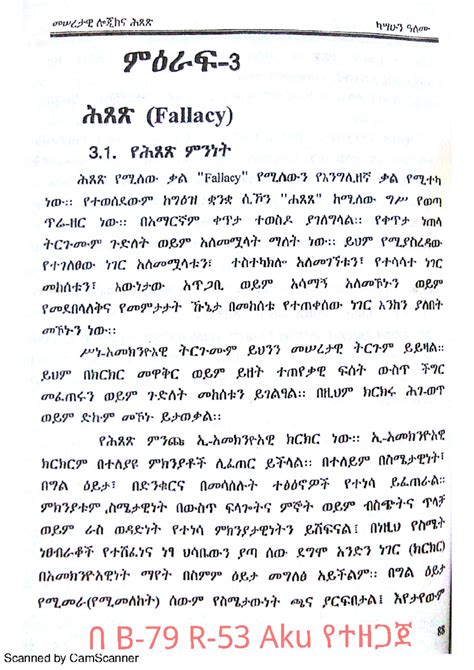 መሠረታዊ ሎጂክና ሕጸጽ ካሣሁን ዓለሙ
ምዕራፍ-3
ሕጸጽ (Fallacy)
3.1. የሕጸጽ ምንነት
ሕጸጽ የሚለው ቃል "Fallacy" የሚለውን የእንግሊዘኛ ቃል የሚተካ
ነው። የተወሰደውም ከግዕዝ ቋንቋ ሲኾን "ሐጸጸ" ከሚለው ግሥ የወጣ
ጥሬ-ዘር ነው። በአማርኛም ቀጥታ ተወስዶ ያገለግላል። የቀጥታ ነጠላ
ትርጉሙም ጉድለት ወይም አለመሟላት ማለት ነው። ይህም የሚያስረዳው
የተገለፀው ነገር አለመሟላቱን፤ ተስተካክሎ አለመገኘቱን፤ የተሳሳተ ነገር
መከሰቱን፤ እውነታው አጥጋቢ ወይም አሳማኝ አለመኾኑን ወይም
የመደበላለቅና የመምታታት ኹኔታ በመከሰቱ የተጠቀሰው ነገር እንከን ያለበት
መኾኑን ነው።
ሥነ-አመክንዮአዊ ትርጉሙም ይህንን መሠረታዊ ትርጉም ይይዛል።
ይህም በክርክር መዋቅር ወይም ይዘት ተጠየቃዊ ፍሰት ውስጥ ችግር
መፈጠሩን ወይም ጉድለት መከሰቱን ይገልፃል። በዚህም ክርክሩ ሕገ-ወጥ
ወይም ድኩም መኾኑ ይታወቃል።
የሕጸጽ ምንጩ ኢ-አመክንዮአዊ ክርክር ነው። ኢ-አመክንዮአዊ
ክርክርም በተለያዩ ምክንያቶች ሊፈጠር ይችላል። በተለይም በስሜታዊነት፣
በግል ዕይታ፣ በድንቁርና በመሳሰሉት ተፅዕኖዎች የተነሳ ይፈጠራል።
ምክንያቱም ,ስሜታዊነት በውስጥ ፍላጐትና ምኞት ወይም ብስጭትና ጥላቻ
ወይም ራስ ወዳድነት የተነሳ ምክንያታዊነትን ይሸፍናል፤ በነዚህ የስሜት
ነፀብራቆች የተሸፈነና ነፃ ህሳቤውን ያጣ ሰው ደግሞ አንድን ነገር (ክርክር)
በአመክንዮአዊነት ማየት በስምም ዕይታ መግለፅ አይችልም። በግል ዕይታ
የሚመራ(የሚመለከት) ሰውም የስሜታውነት ጫና ያርፍበታል፤ እየታየውም
88
በ B-79 R-53 Aku የተዘጋጀ
Scanned by CamScanner